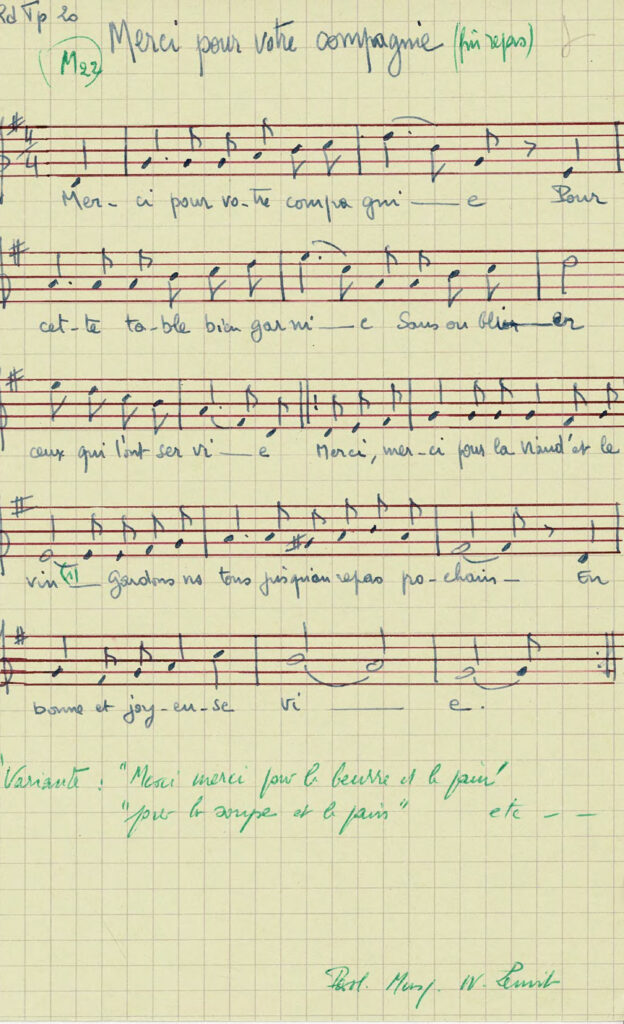 Rd Tp 20
M22
Merci pour votre compagnie (fin repas)
4
4
Mer-ci pour vo-tre compa gni — e Pour
cet-te ta-ble bien gar ni — e Sans ou bli — er
ceux qui l'ont ser vi — e Merci, mer-ci pour la viand' et le
vin — Gardons no tous jusqu'au repas po-chain — En
bonne et joy-eu-se vi — e.
Variante : "Merci merci pour le beurre et le pain"
"pour la soupe et le pain" etc - -
Parol. Musq. W.